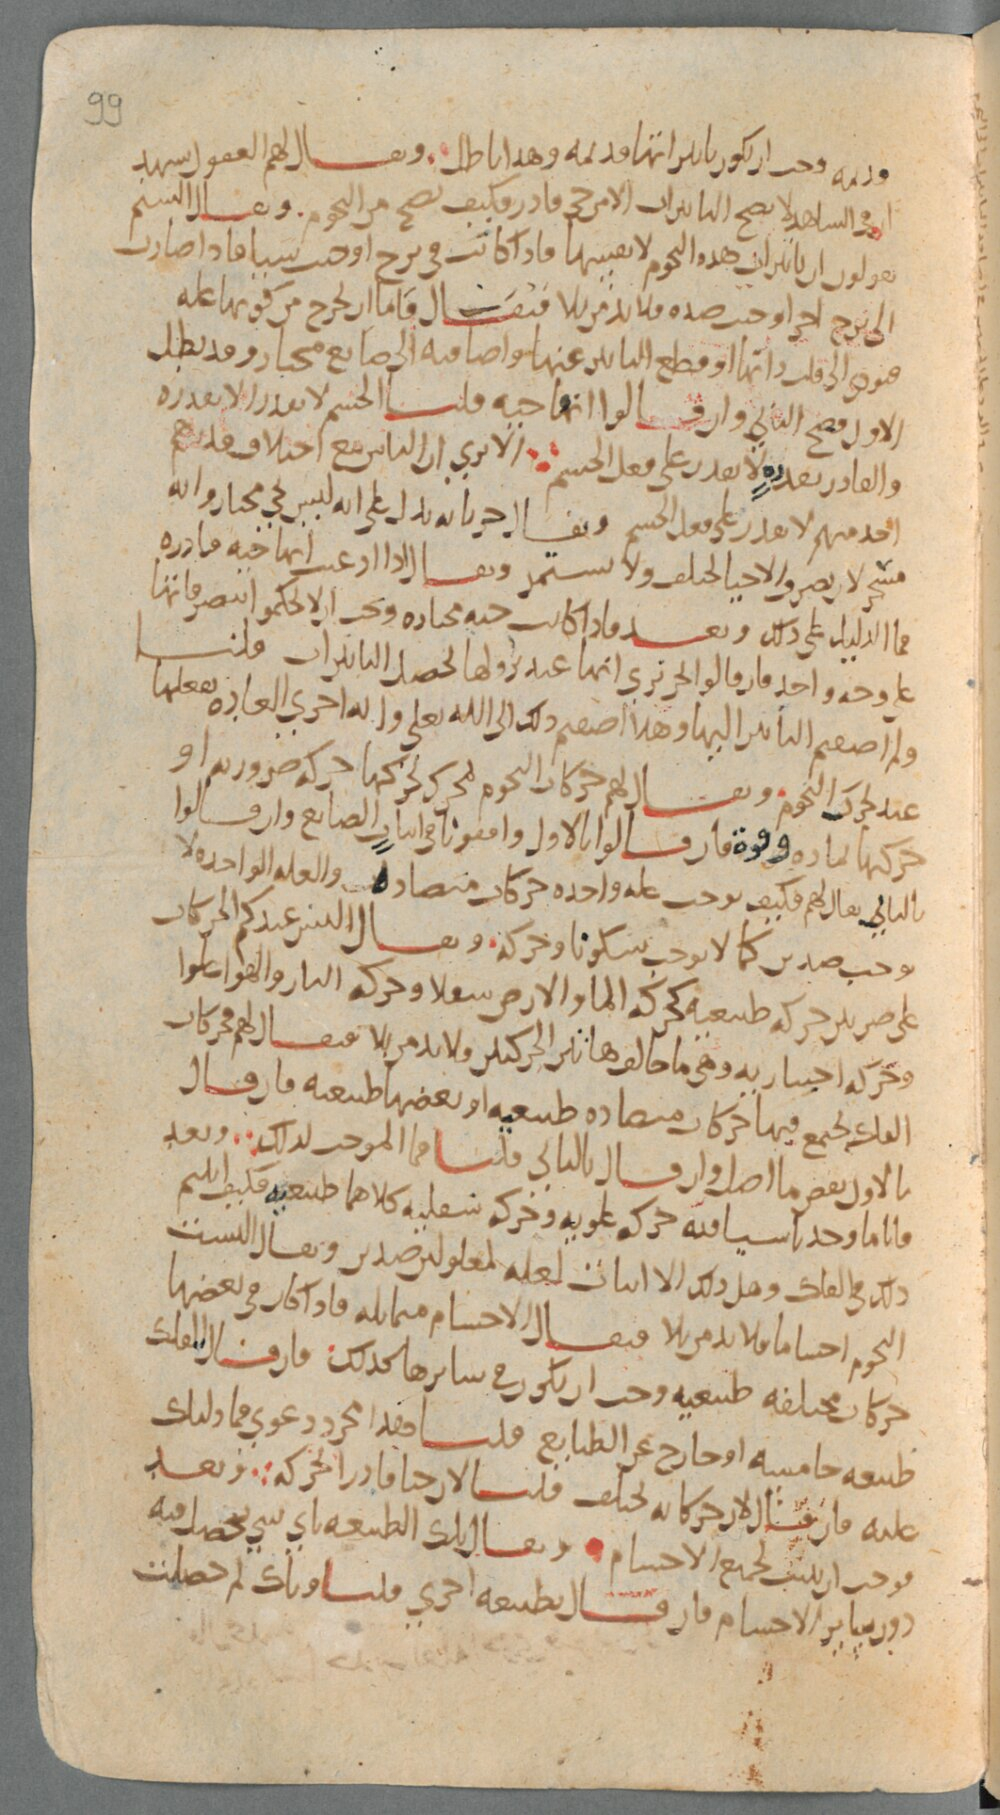 99
قديمة وجب ان يكون تاثيراتها قديمة وهذا باطل ويقال لهم العقول تشهد
ان في الشاهد لا يصح التاثيرات الا من حي قادر فكيف تصح من النجوم ويقال الستم
تقولون ان تاثيرات هذه النجوم لا بعينها فاذا كانت في برج اوجبت شيا فاذا صارت
الى برج اخر اوجبت ضده فلا بد من بلا فيقال فاما ان يخرج من كونها علة
الى قلب ذاتها او قطع التاثير عنها واضافته الى صانع مختار وقد بطل
الاول فصح الثاني وان قالوا انها حية قلنا الجسم لا يقدر الا بقدرة
والقادر بقدرة لا يقدر على فعل الجسم الا ترى ان الناس مع اختلاف قدرهم
احد منهم لا يقدر على فعل الجسم ويقال جريانه يدل على انه ليس بحي مختار وانه
مسخر لان تصرف الاحيا يختلف ولا يستمر ويقال اذا ادعيت انها حية قادرة
فما الدليل على ذلك وبعد فاذا كانت حية مختارة وجب ان لا يحكموا بتصرفاتها
على وجه واحد فان قالوا الحس نرى انها عند نزولها يحصل التاثيرات قلنا
ولم اضفتم التاثير اليها وهلا اضفتم ذلك الى الله تعالى وانه اجرى العادة بفعلها
عند تحرك النجوم ويقال لهم حركات النجوم لمحرك يحركها ام حركة ضرورية او
حركتها لمادة وقوة فان قالوا بالاول وافقونا في اثبات الصانع وان قالوا
بالثاني يقال لهم فكيف يوجب علة واحدة حركات متضادة والعلة الواحدة لا
توجب ضدين كما لا توجب سكونا وحركة ويقال اليس عندكم الحركات
على ضربين حركة طبيعية كحركة الماء والارض سفلا وحركة النار والهواء علوا
وحركة اختيارية وهي ما خالف هاتين الحركتين ولا بد من بلا فيقال لهم فحركات
الفلك يجتمع فيها حركات متضادة طبيعية او بعضها طبيعية فان قال
بالاول نقض ما اصل وان قال بالثاني قلنا فما الموجب لذلك وبعد
فانا ما وجدنا شيا فيه حركة علوية وحركة سفلية كلاهما طبيعية فكيف اثبتم
ذلك في الفلك وهل ذلك الا اثبات لعلة لمعلولين ضدين ويقال اليست
النجوم اجساما فلا بد من بلا فيقال الاجسام متماثلة فاذا كان في بعضها
حركات مختلفة طبيعية وجب ان يكون في سايرها كذلك فان قال الفلك
طبيعة خامسة او خارج عن الطبايع قلنا فهذا مجرد دعوى فما دليلك
عليه فان قال لان حركاته تختلف قلنا لان حيا قادرا يحركه وبعد
فوجب ان يثبت لجميع الاجسام ويقال تلك الطبيعة باي شي تحصل فيه
دون ساير الاجسام فان قال بطبيعة اخرى قلنا وتلك لم حصلت